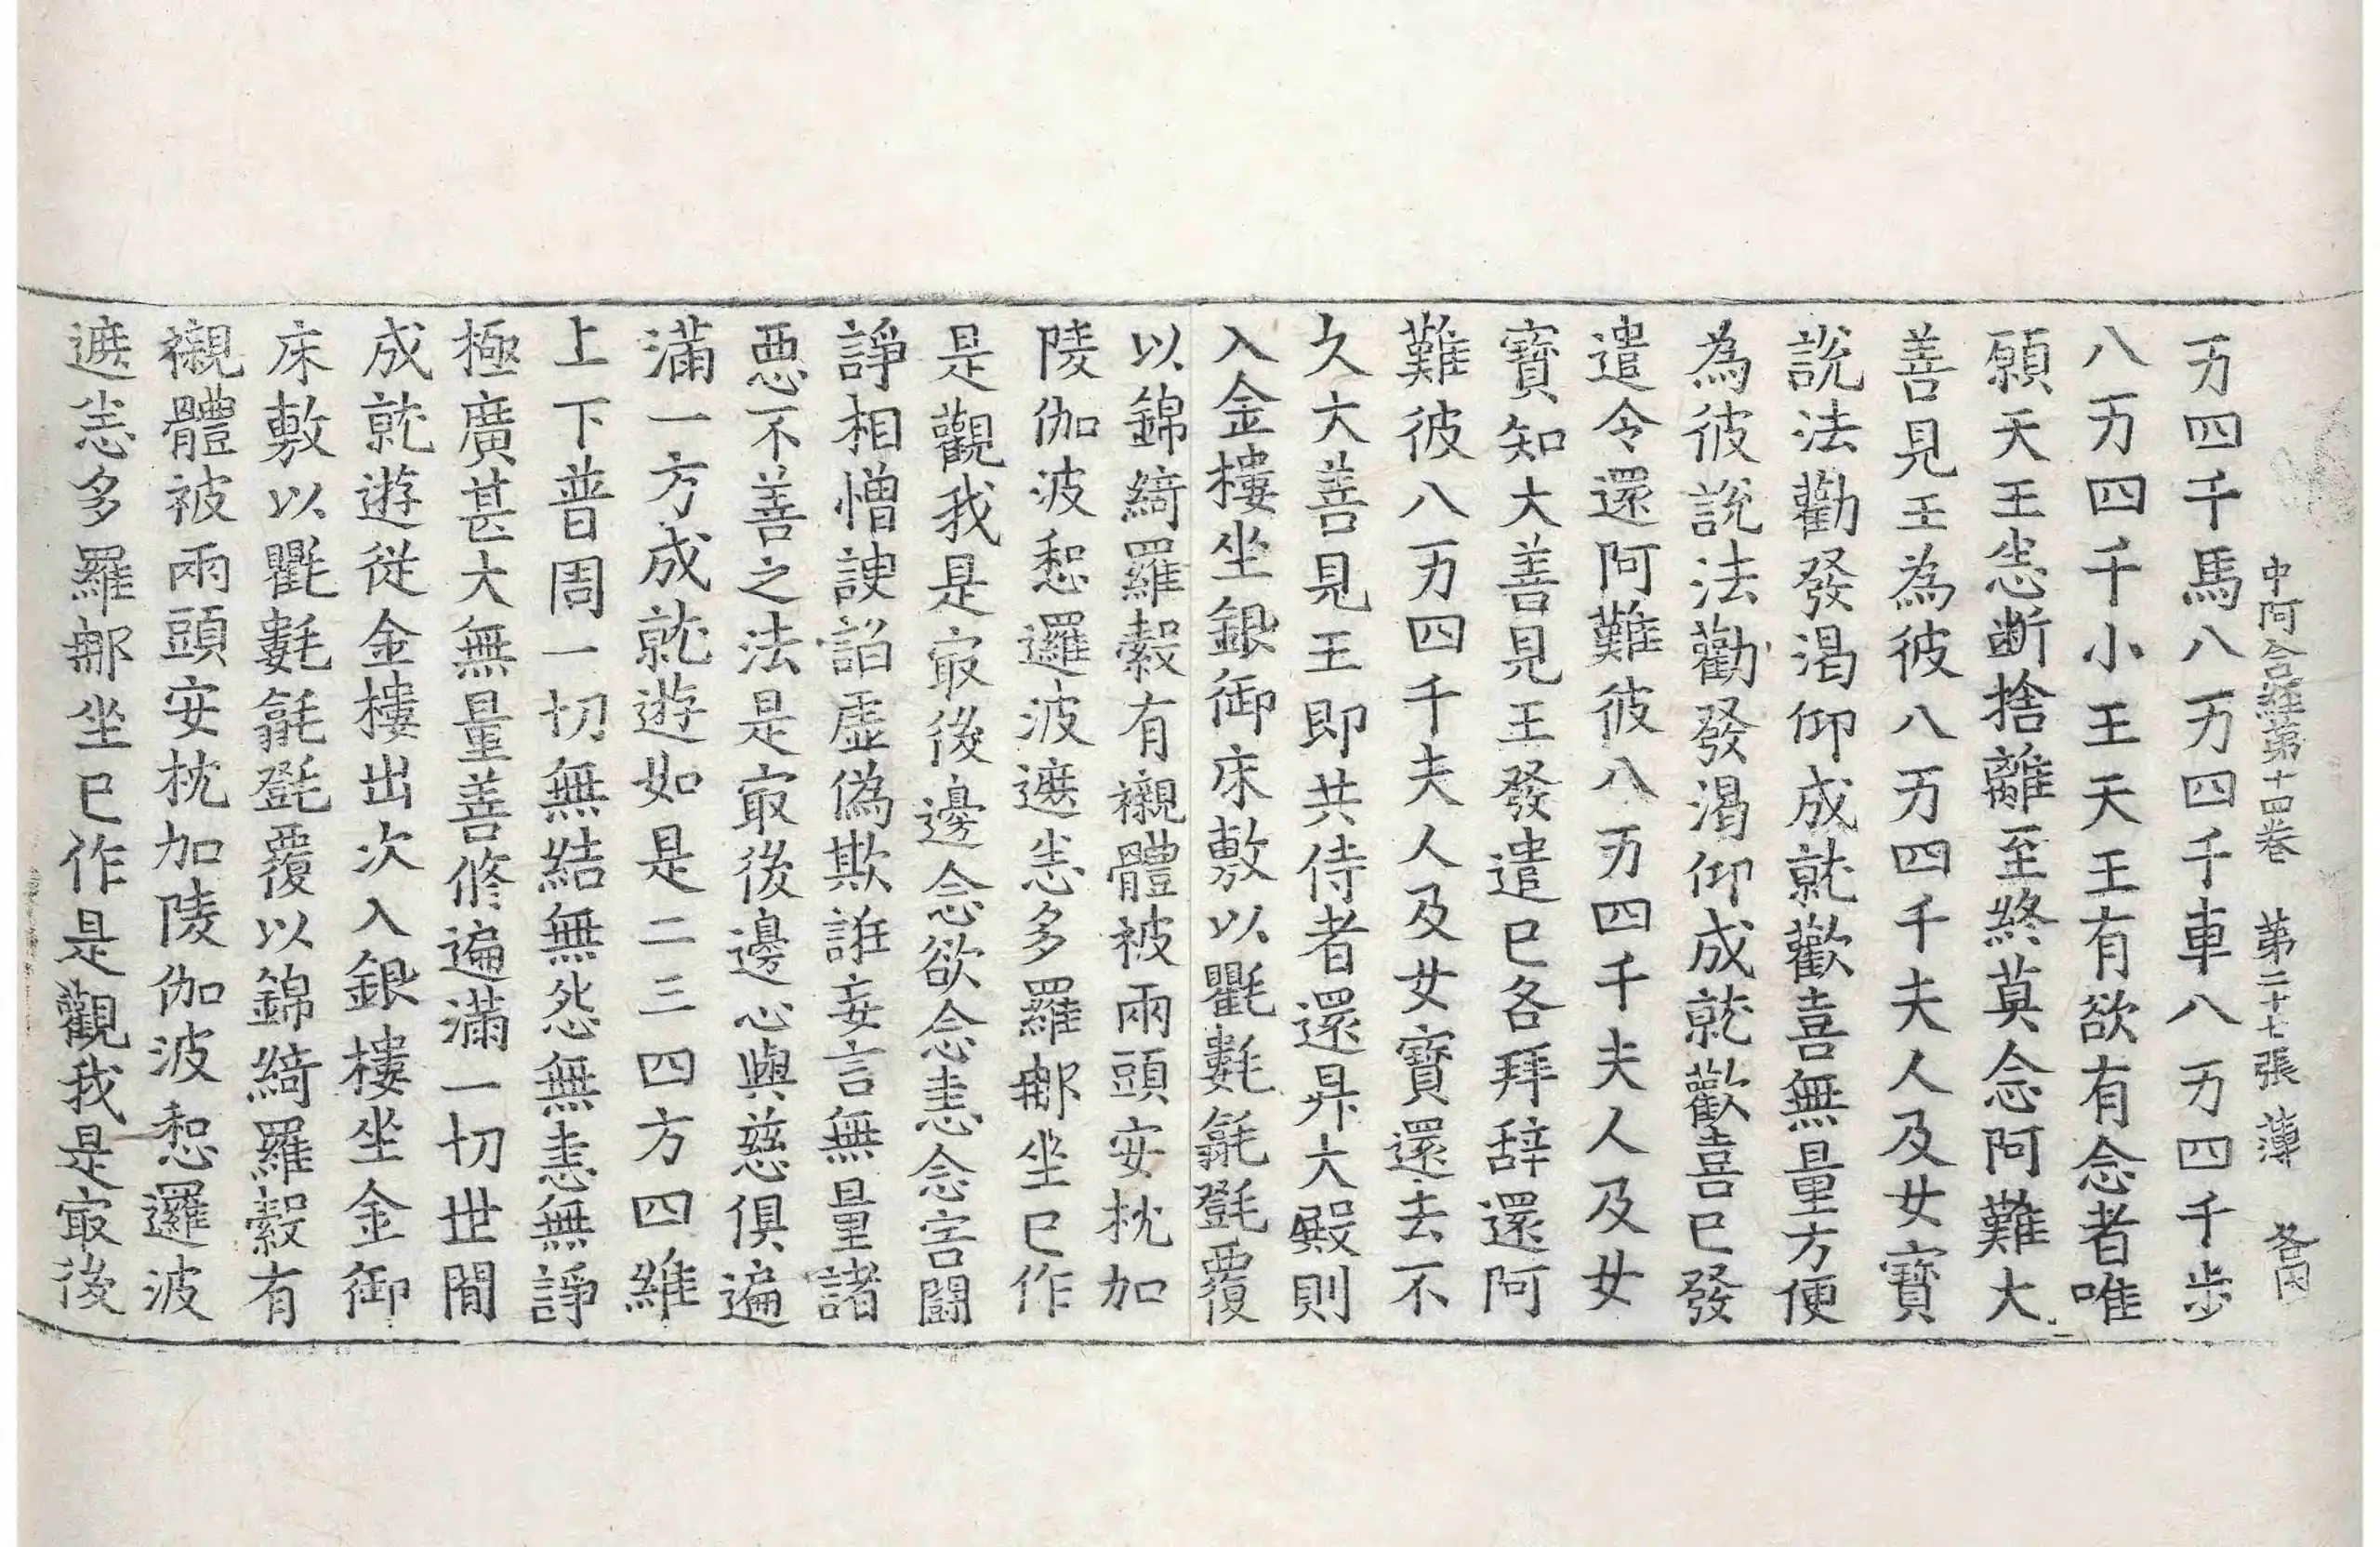 中阿含經第十四卷 第二十七張 薄
万四千馬八万四千車八万四千步
八万四千小王天王有欲有念者唯
願天王恚断捨離至終莫念阿難大
善見王為彼八万四千夫人及女寶
説法勸發渴仰成就歡喜無量方便
為彼説法勸發渴仰成就歡喜已發
遣令還阿難彼八万四千夫人及女
寶知大善見王發遣已各拜辞還阿
難彼八万四千夫人及女寶還去不
久大善見王即共侍者還昇大殿則
入金樓坐銀御床敷以氍氀毾㲪覆
以錦綺羅縠有襯體被兩頭安枕加
陵伽波惒邏波遮悉多羅那坐已作
是觀我是㝡後邊念欲念恚念害闘
諍相憎諛諂虚偽欺誑妄言無量諸
惡不善之法是㝡後邊心與慈俱遍
滿一方成就遊如是二三四方四維
上下普周一切無結無怨無恚無諍
極廣甚大無量善修遍滿一切世間
成就遊従金樓出次入銀樓坐金御
床敷以氍氀毾㲪覆以錦綺羅縠有
襯體被兩頭安枕加陵伽波惒邏波
遮悉多羅那坐已作是觀我是㝡後